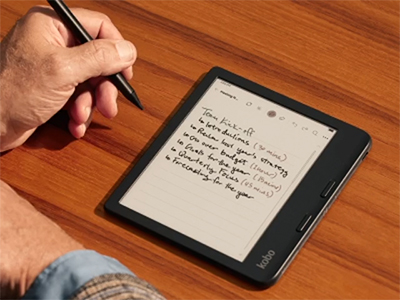 Team Kick-off
↳ Introductions (30 mins)
↳ Review last years strategy
↳ Go over budget (1 hour)
↳ Goals for the year
↳ Quarterly Focus (45 mins)
↳ Forecasting for the year
kobo